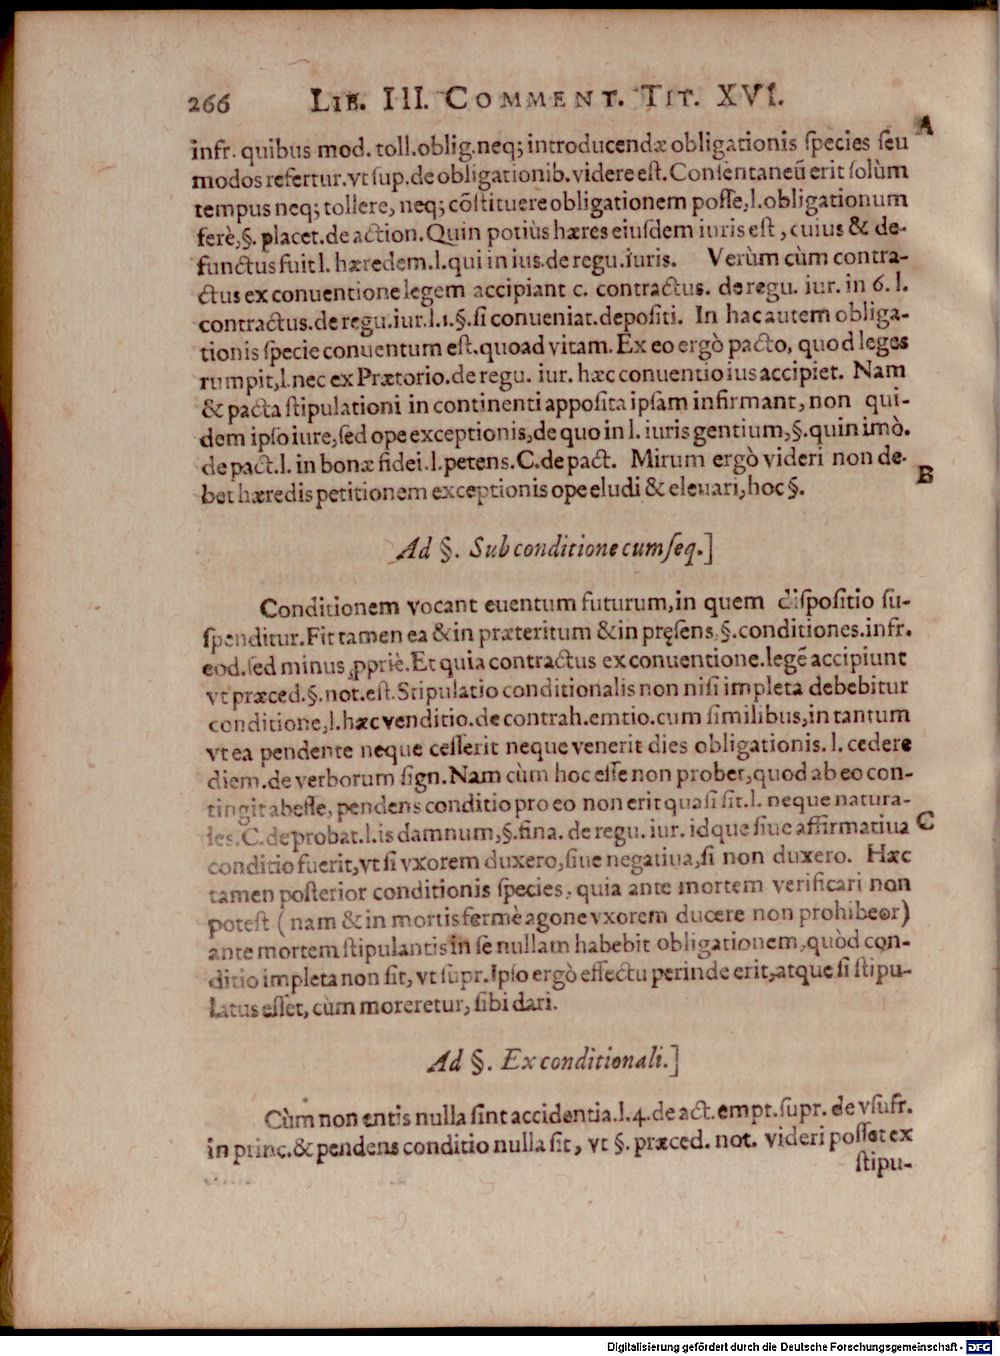 266 LIB. III. COMMENT. TIT. XVI.
A
infr. quibus mod. toll.oblig.neq; introducendæ obligationis ſpecies ſeu
modos refertur.vt ſup.de obligationib.videre eſt.Conſentaneũ erit ſolùm
tempus neq; tollere, neq; cõſtituere obligationem poſſe,l.obligationum
ferè,§. placet.de action.Quin potiùs hæres eiuſdem iuris eſt, cuius & de-
functus fuit l. hæredem.l.qui in ius.de regu.iuris. Verùm cùm contra-
ctus ex conuentione legem accipiant c. contractus. de regu. iur. in 6. l.
contractus.de regu.iur.l.1.§.ſi conueniat.depoſiti. In hac autem obliga-
tionis ſpecie conuentum eſt.quoad vitam. Ex eo ergò pacto, quod leges
rumpit,l.nec ex Prætorio.de regu. iur. hæc conuentio ius accipiet. Nam
& pacta ſtipulationi in continenti appoſita ipſam infirmant, non qui-
dem ipſo iure,ſed ope exceptionis,de quo in l. iuris gentium,§.quinimò.
de pact.l. in bonæ fidei.l.petens.C.de pact. Mirum ergò videri non de-
B
bet hæredis petitionem exceptionis ope eludi & eleuari,hoc §.
Ad §. Sub conditione cum ſeq.]
Conditionem vocant euentum futurum,in quem diſpoſitio ſu-
ſpenditur.Fit tamen ea & in præteritum & in pręſens.§.conditiones.infr.
eod.ſed minus ꝓpriè.Et quia contractus ex conuentione.legẽ accipiunt
vt præced.§.not.eſt.Stipulatio conditionalis non niſi impleta debebitur
conditione,l.hæc venditio.de contrah.emtio.cum ſimilibus,in tantum
vt ea pendente neque ceſſerit neque venerit dies obligationis. l. cedere
diem.de verborum ſign.Nam cùm hoc eſſe non probet,quod ab eo con-
tingit abeſſe, pendens conditio pro eo non erit quaſi ſit.l. neque natura-
les.C.de probat.l.is damnum,§.fina. de regu. iur. idque ſiue affirmatiua
C
conditio fuerit,vt ſi vxorem duxero,ſiue negatiua,ſi non duxero. Hæc
tamen poſterior conditionis ſpecies, quia ante mortem verificari non
poteſt (nam & in mortis fermè agone vxorem ducere non prohibeor)
ante mortem ſtipulantis in ſe nullam habebit obligationem,quòd con-
ditio impleta non ſit, vt ſupr.Ipſo ergò effectu perinde erit,atque ſi ſtipu-
latus eſſet, cùm moreretur, ſibi dari.
Ad §. Ex conditionali.]
Cùm non entis nulla ſint accidentia.l.4.de act.empt.ſupr. de vſufr.
in princ.& pendens conditio nulla ſit, vt §. præced. not. videri poſſet ex
ſtipu-
Digitalisierung gefördert durch die Deutsche Forschungsgemeinschaft - DFG